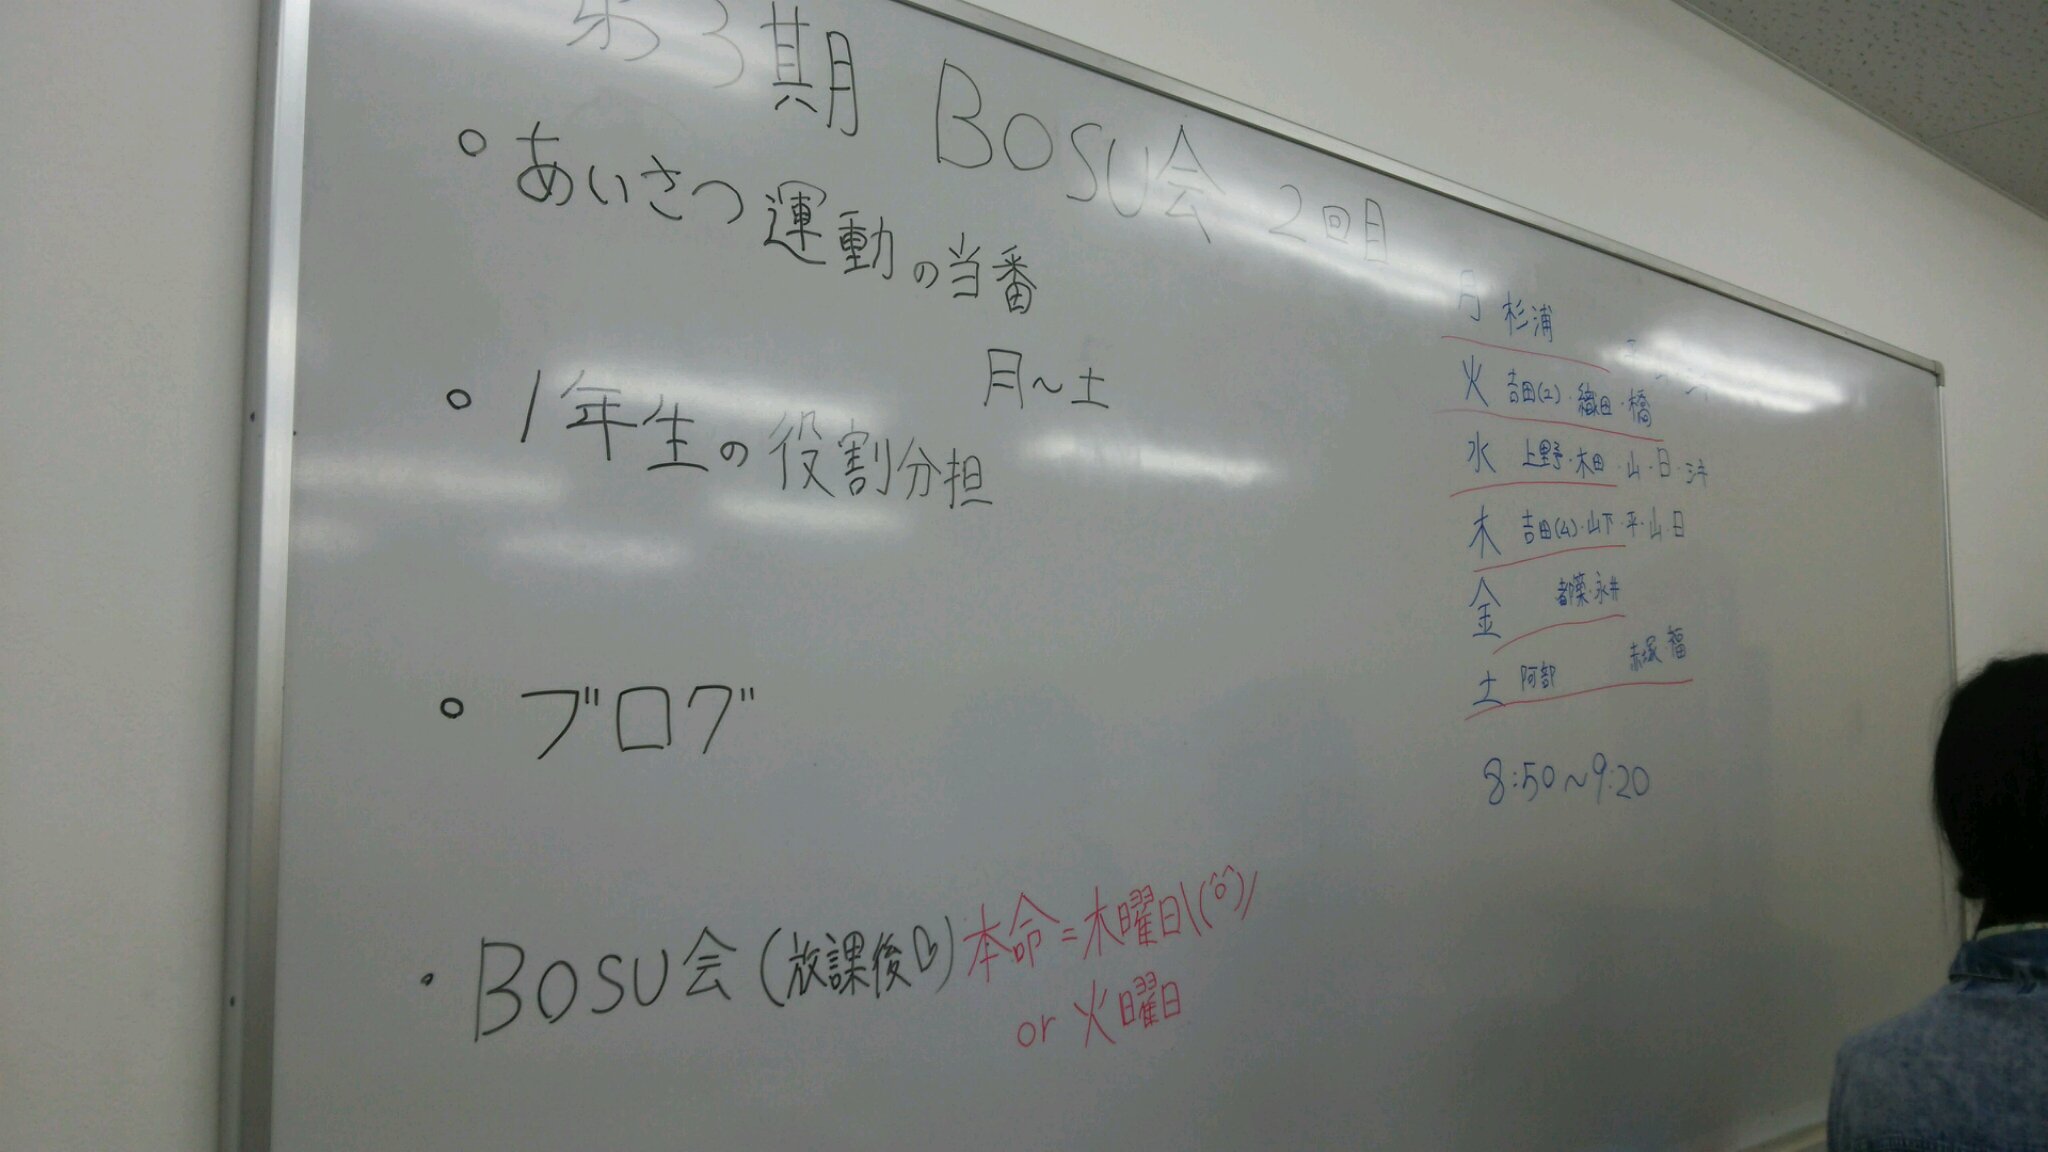 第3期 BOSU会 2回目
・あいさつ運動の当番
月～土
・1年生の役割分担
・ブログ
・BOSU会(放課後)本命=木曜日\(^o^)/
or 火曜日
月 杉浦
火 吉田(2)・織田・橋
水 上野・木田・山・日・
木 吉田(ム)・山下・平・山・日
金 都築・永井
土 阿部 赤塚・福
8:50～9:20